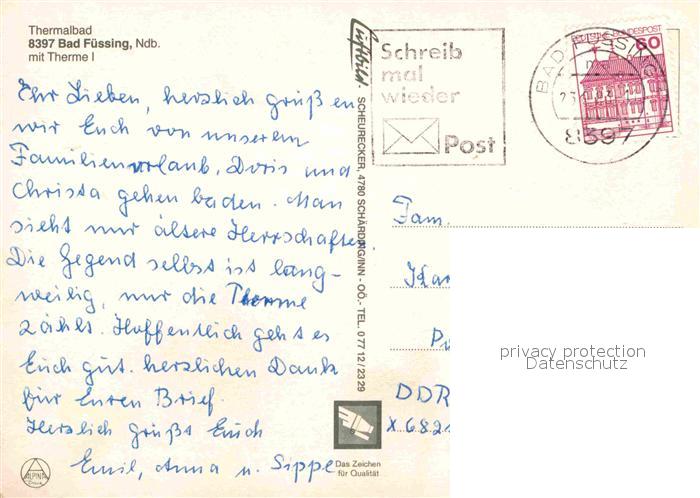 Thermalbad
8397 Bad Füssing, Ndb.
mit Therme I
Ehr Lieben, herzlich grüßen
wir Euch von unserem
Familienurlaub, Doris und
Christa gehen baden. Man
sieht nur ältere Herrschaften.
Die Gegend selbst ist lang-
weilig, nur die Therme
zählt. Hoffentlich geht es
Euch gut. herzlichen Dank
für Euren Brief.
Herzlich grüßt Euch
Emil, Anna u. Sippe
ALPINA
Druck
Luftbild.
SCHEURECKER, 4780 SCHÄRDING/INN - OÖ. - TEL. 0 77 12 / 23 29
Das Zeichen
für Qualität
Schreib
mal
wieder
Post
BAD FÜSSING
8397
BUNDESPOST
60
Fam.
Kar
DDR
X 682
privacy protection
Datenschutz